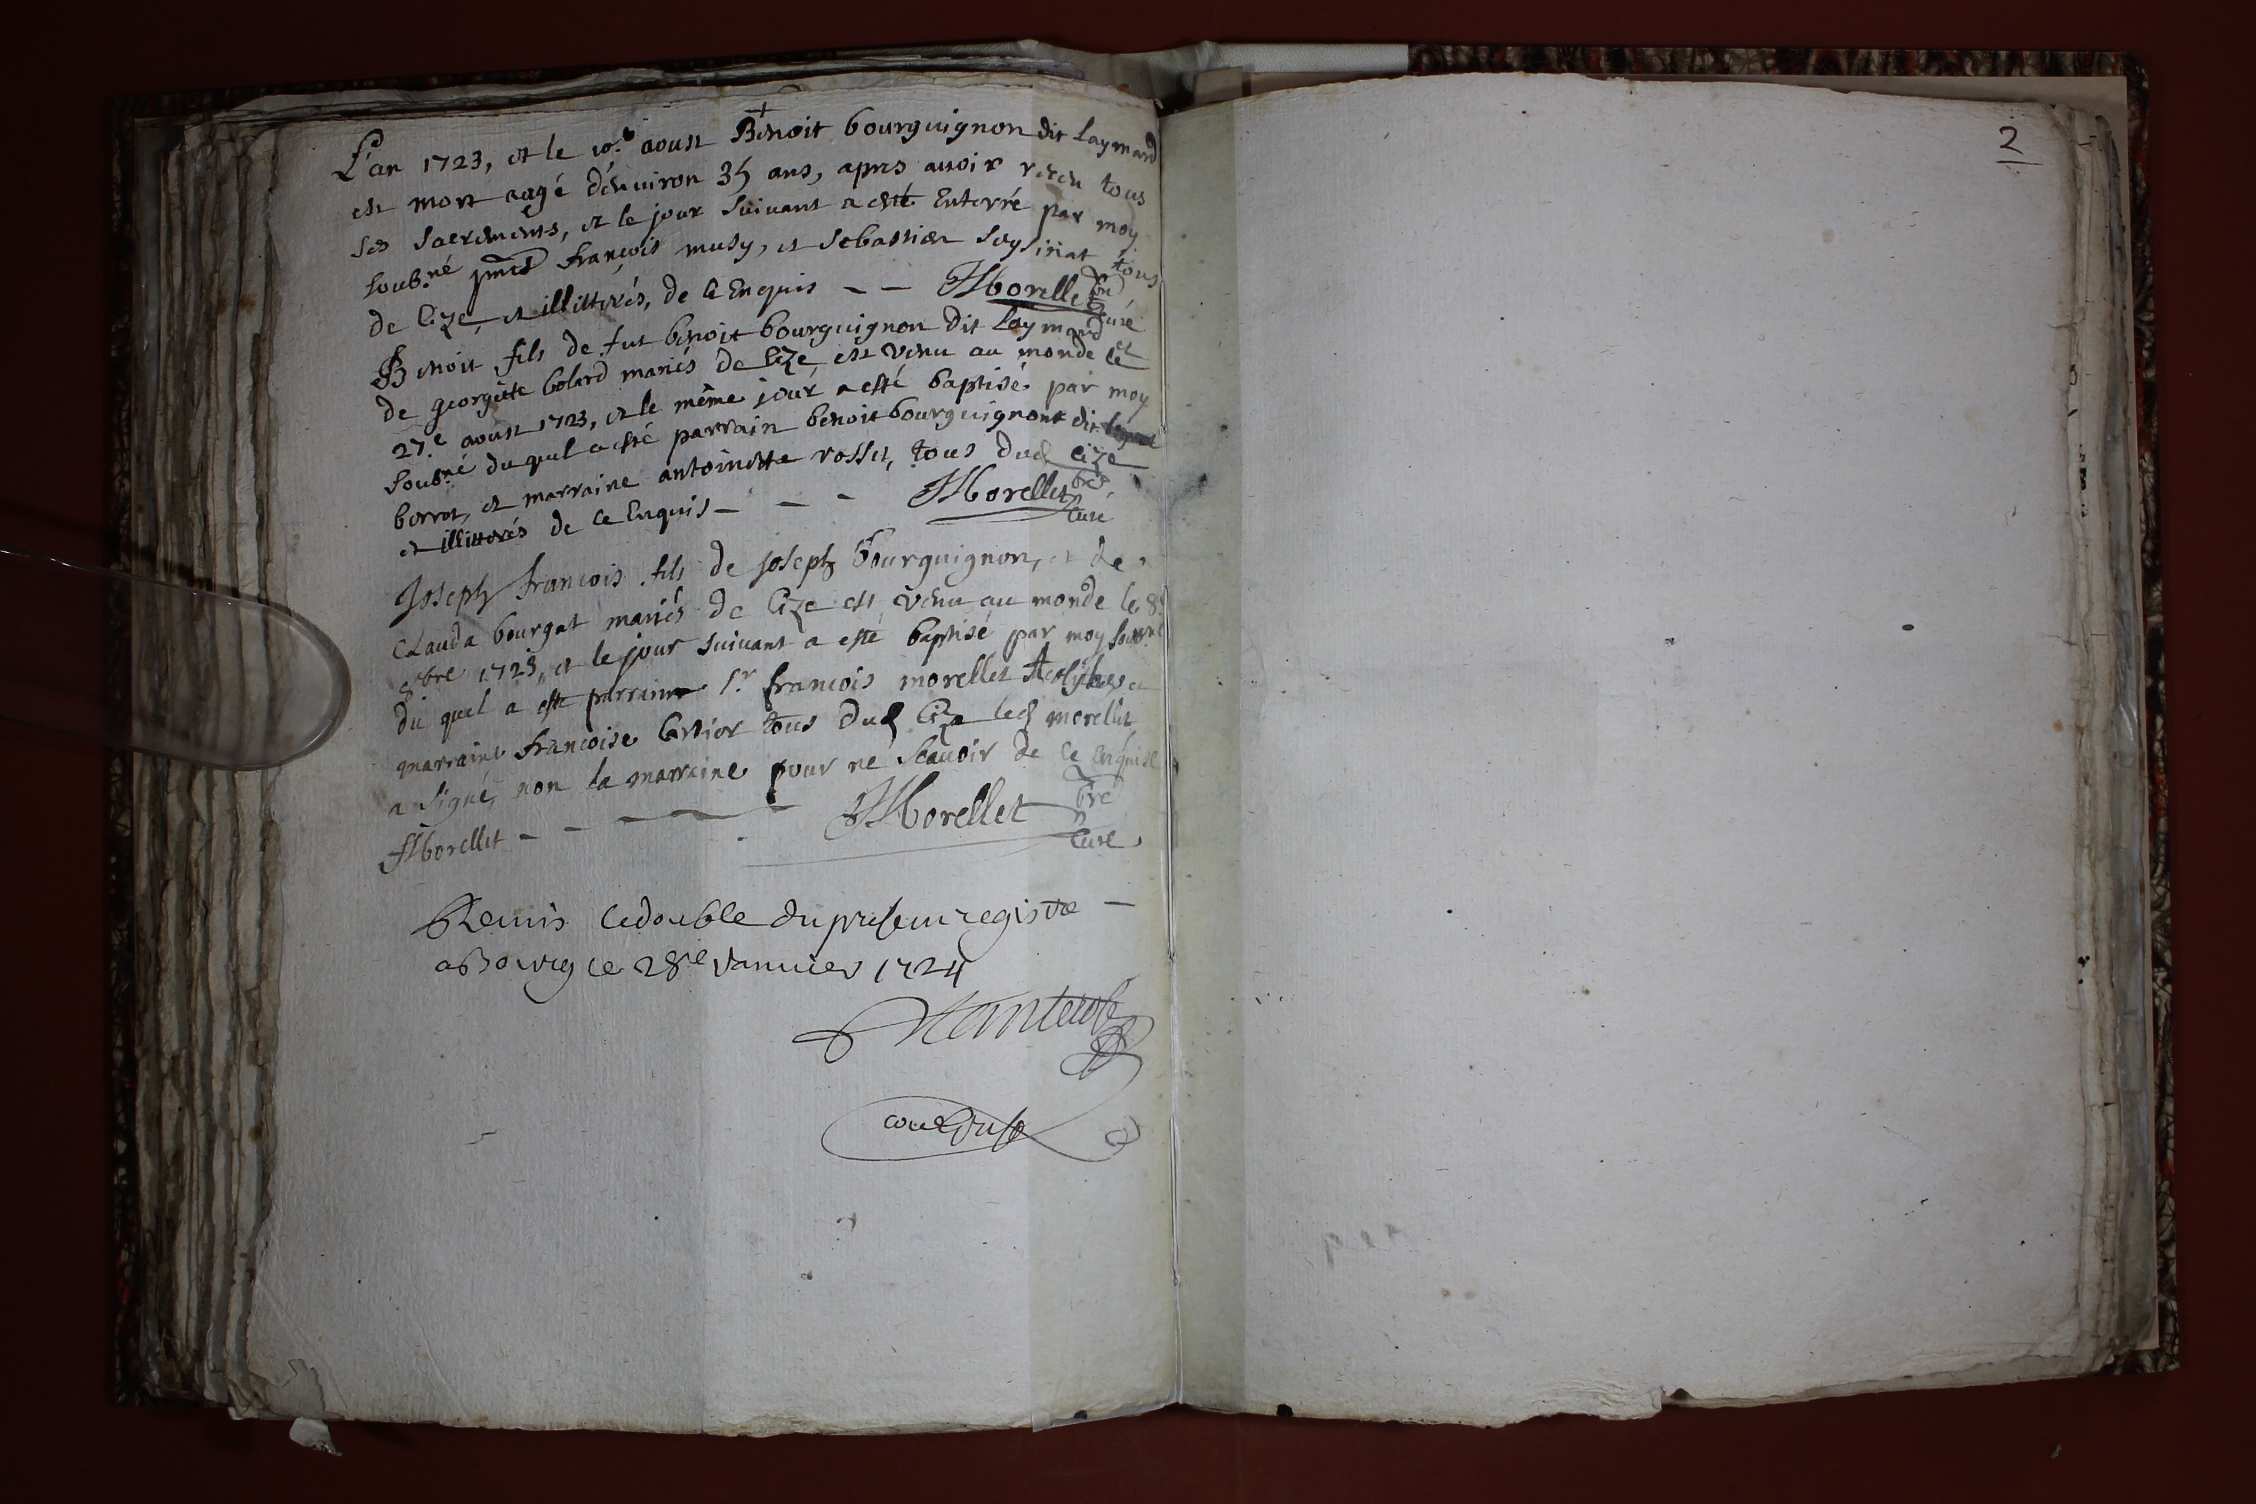 L'an 1723, et le 10.e aoust Benoit bourguignon dit Laymard
est mort aagé d'enuiron 35 ans, apres auoir receu tous
ses sacrements, et le jour suivant a esté Enterré par moy
soub.né pnts françois musy, et sebastien seysiriat tous
de Cize, et illitterés, de ce Enquis - - Morellet pre Curé
Benoit fils de fut benoit bourguignon dit Laymard et
de georgette bolard mariés de Cize, est venu au monde le
27.e aoust 1723, et le même jour a esté baptisé par moy
soub.né du quel a esté parrain benoit bourguignont dit
borrot, et marraine antoinette rosset, tous dud Cize
et illitterés de ce Enquis - - - Morellet pre Curé
Joseph françois fils de joseph bourguignon, et de
Clauda bourgat mariés de Cize est venu au monde le 8.e
8bre 1723, et le jour suivant a esté baptisé par moy soub.né
du quel a esté parrain Sr. françois morellet et
marraine françoise tous dud Cize led morellet
a signé, non la marraine pour ne sçauoir de ce enquise
fMorellet - - - Morellet pre Curé
Remis le double du present registre -
a Bourg le 28.e Januier 1724
2